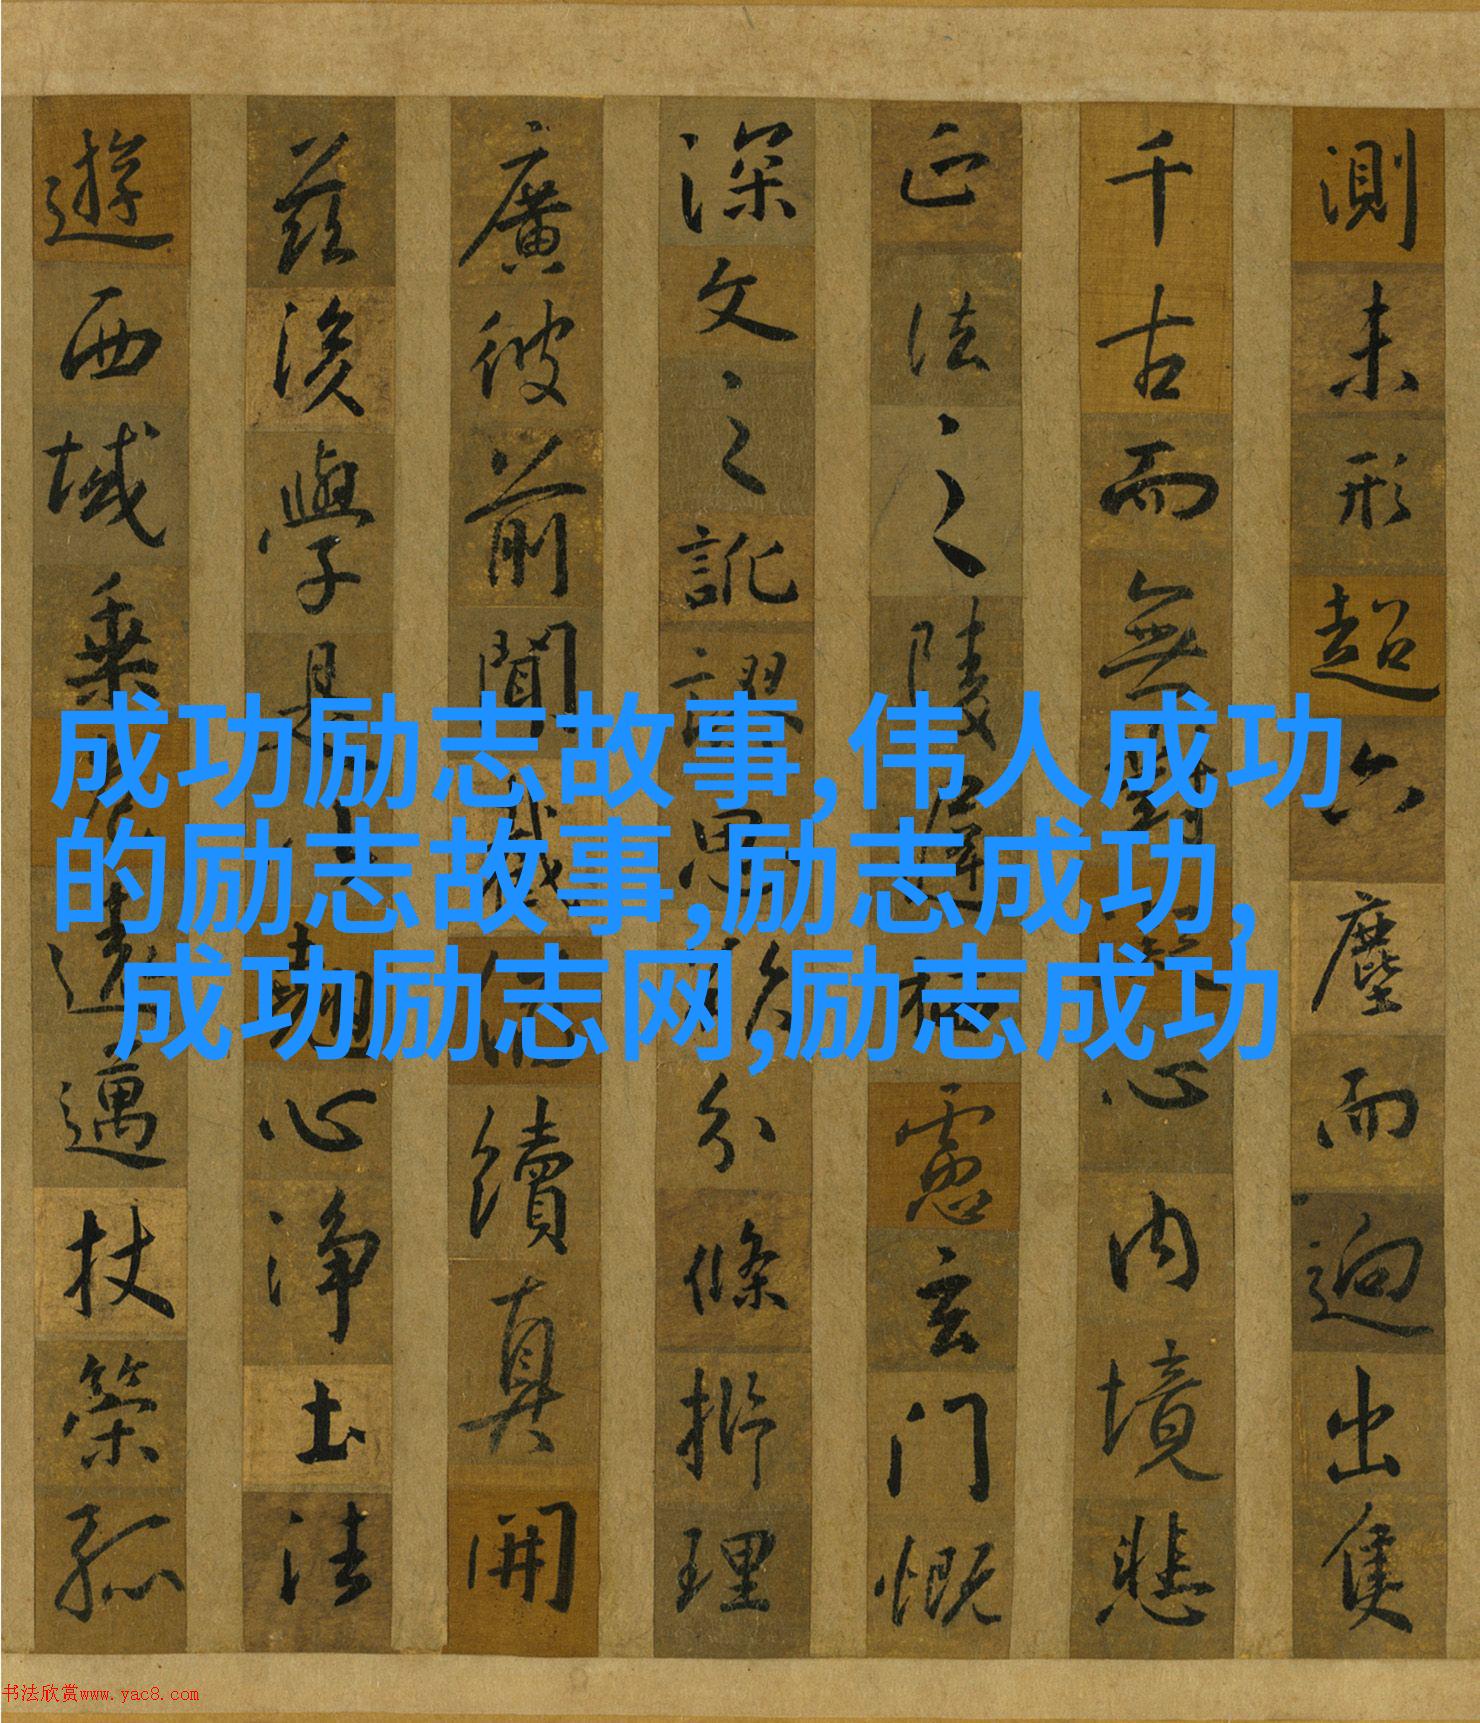 測未形超六塵而迥出隻
千古而無對心內境悲
正法之陵遲栖慮玄門慨
深文之訛謬思欲分條析理
廣彼前聞截續真開
茲後學是翹心淨土法
遊西域乘遠邁杖策孤
成功励志故事,伟人成功
的励志故事,励志成功,
成功励志网,励志成功
书法欣赏www.yac8.com